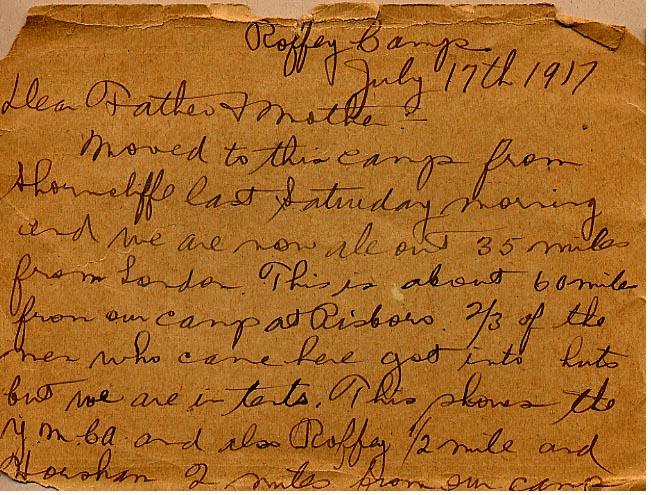 Roffey Camp
July 17th 1917
Dear Father & Mother -
Moved to this camp from
Shorncliffe last Saturday morning
and we are now about 35 miles
from London. This is about 60 miles
from our camp at Risboro. 2/3 of the
men who came here got into huts
but we are in tents. This shows the
Y.M.C.A. and also Roffey 1/2 mile and
Horsham 2 miles from our camp